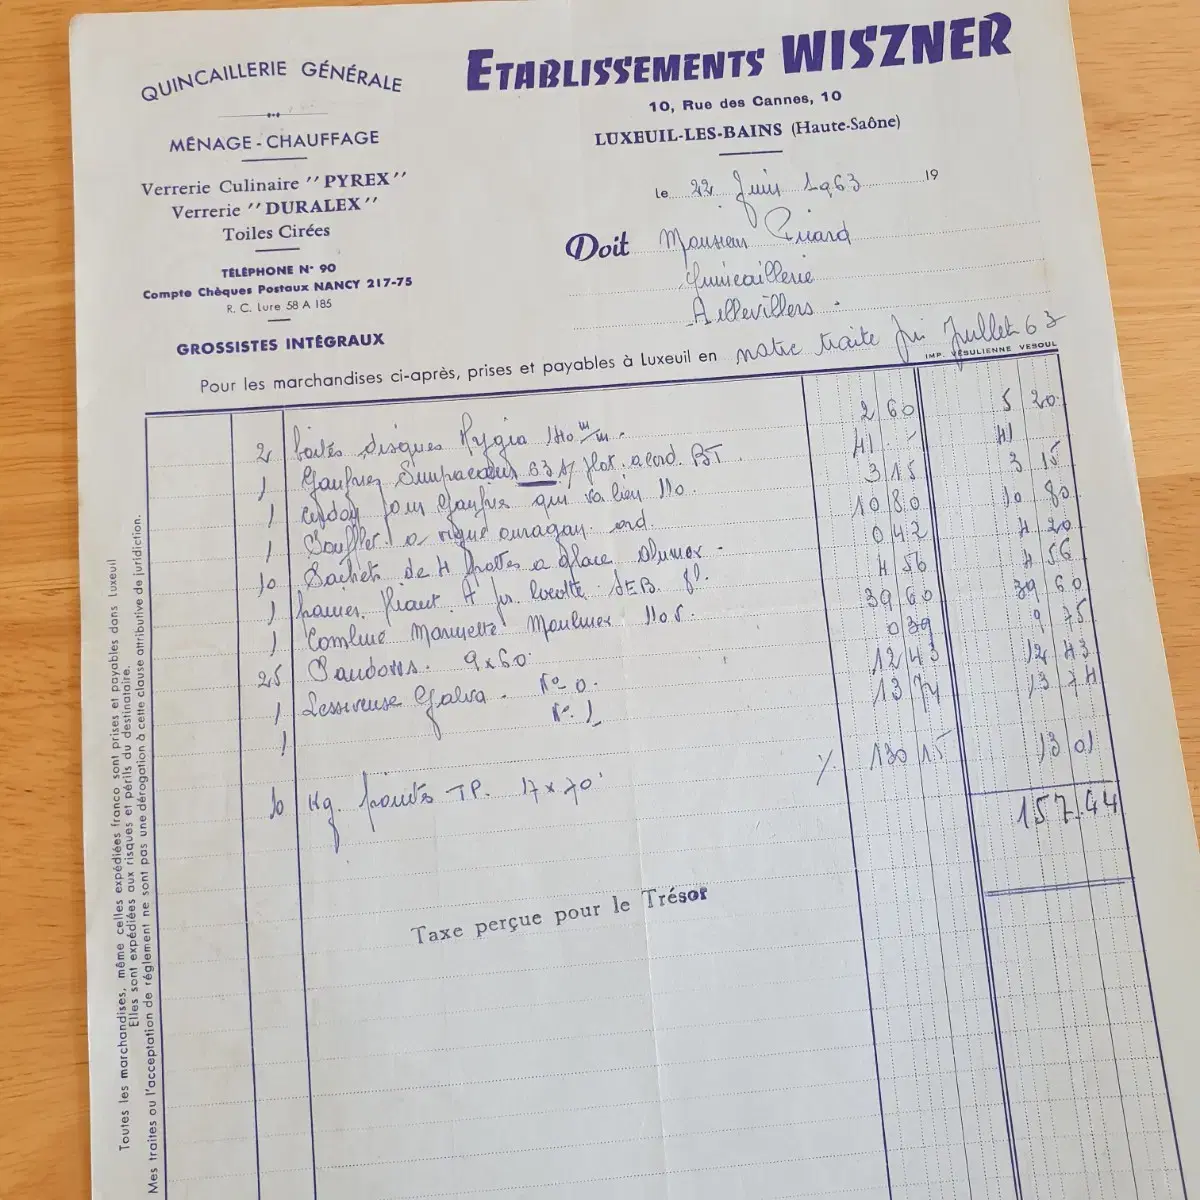 QUINCAILLERIE GÉNÉRALE
MÉNAGE - CHAUFFAGE
Verrerie Culinaire "PYREX"
Verrerie "DURALEX"
Toiles Cirées
TÉLÉPHONE N° 90
Compte Chèques Postaux NANCY 217-75
R. C. Lure 58 A 185
GROSSISTES INTÉGRAUX
ETABLISSEMENTS WISZNER
10, Rue des Cannes, 10
LUXEUIL-LES-BAINS (Haute-Saône)
le 22 Juin 1963 19
Doit Monsieur
Quincaillerie
Aillevillers.
Pour les marchandises ci-après, prises et payables à Luxeuil en notre traite fin Juillet 63
IMP. VÉSULIENNE VESOUL
2 boîtes disques Hygia 140 m/m. 2 60 5 20
1 Gaufrier 63 BT 41 - 41
1 cordon pour Gaufrier 110. 3 15 3 15
1 Soufflet a vigne ouragan ord. 10 80 10 80
10 Sachets de 4 a glace 0 42 4 20
1 panier A pr. cocotte SEB. 8l. 4 56 4 56
1 Combiné Marinette Moulinex 110 39 60 39 60
25 9x60. 0 39 9 75
1 Lessiveuse Galva. N° 0. 12 43 12 43
1 N° 1 13 74 13 74
10 Kg. pointes TP. 17 x 70 %. 130 15 13 01
157.44
Taxe perçue pour le Trésor
Toutes les marchandises, même celles expédiées franco sont prises et payables dans Luxeuil
Elles sont expédiées aux risques et périls du destinataire.
Mes traites ou l'acceptation de réglement ne sont pas une dérogation à cette clause attributive de juridiction.